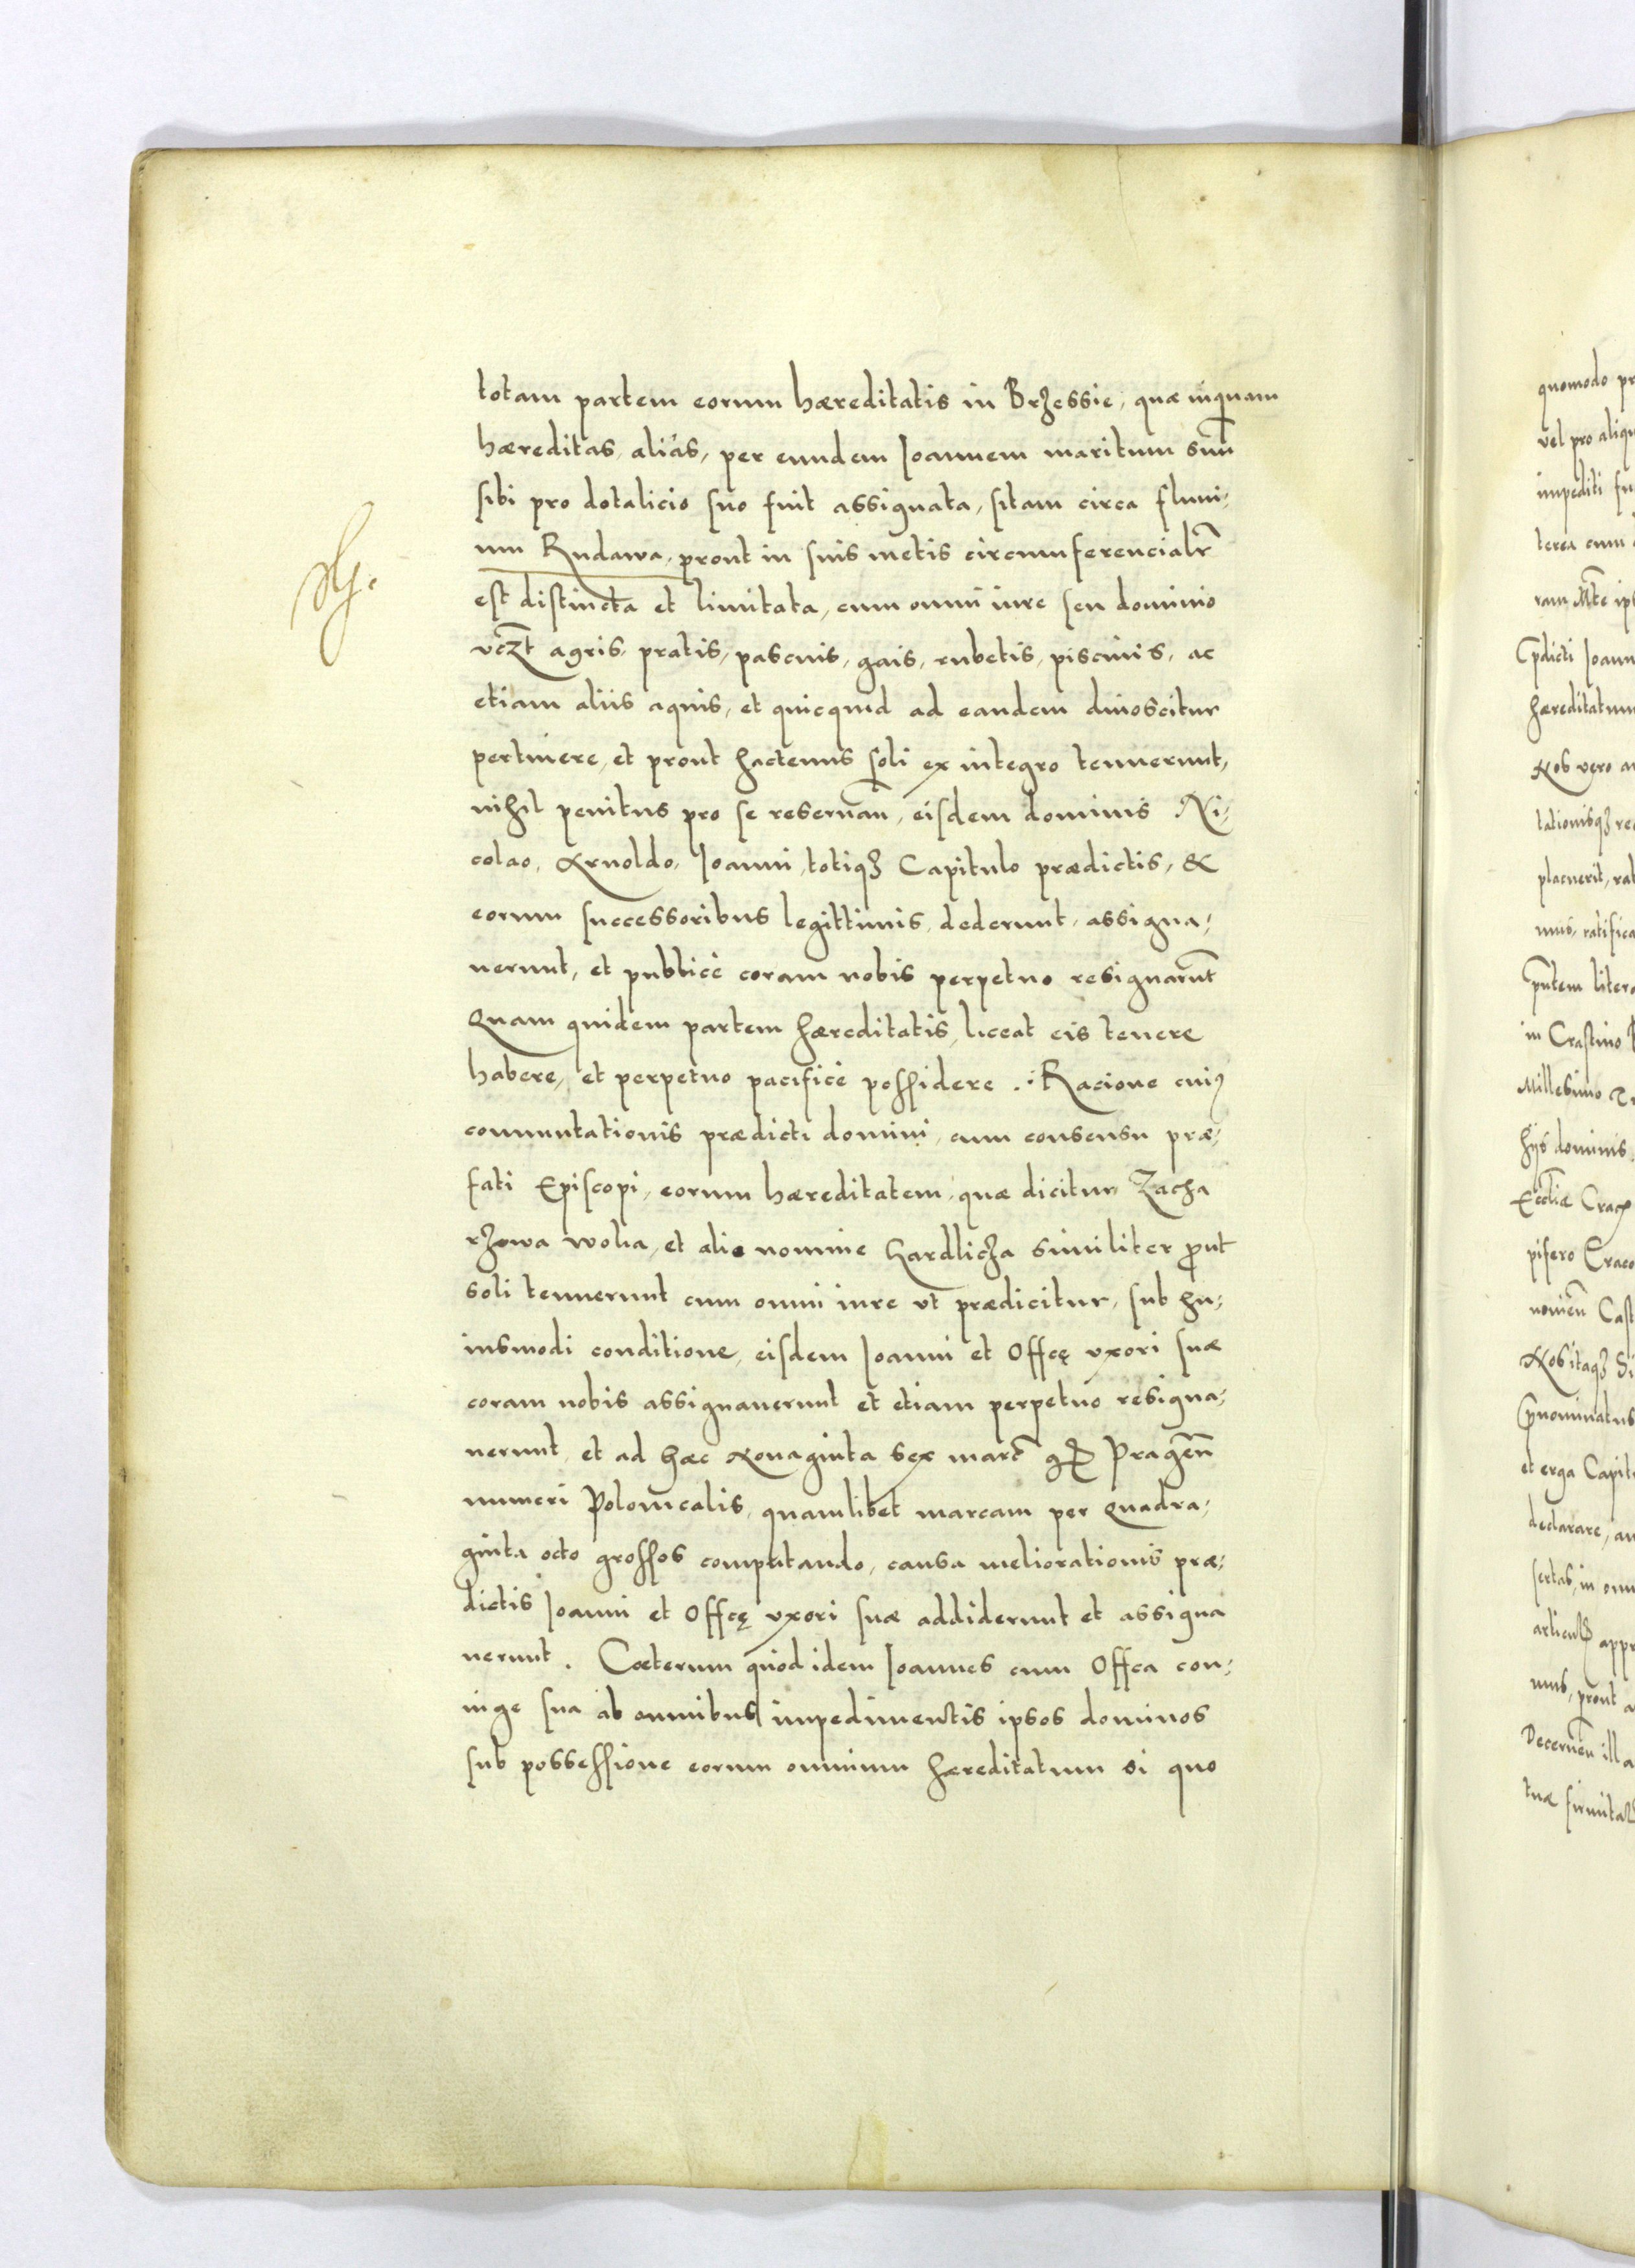 totam partem eorum hæreditatis in Brzessie, quæ inquam
hæreditas, aliàs, per eundem Ioannem maritum suũ
sibi pro dotalicio suo fuit assignata, sitam circa fluui-
um Rudawa, prout in suis metis circumferencialr̃
est distincta et limitata, cum omni iure seu dominio
vcz̃t agris, pratis, pascuis, gais, rubetis, piscinis, ac
etiam aliis aquis, et quicquid ad eandem dinoscitur
pertinere, et prout hactenus soli ex integro tenuerunt,
nihil penitus pro se reseruan̄, eisdem dominis Ni-
colao, Arnoldo, Ioanni, totiqȝ Capitulo prædictis, &
eorum successoribus legittimis, dederunt, assigna-
uerunt, et publicè coram nobis perpetuo resignarũt
Quam quidem partem hæreditatis, liceat eis tenere
habere, et perpetuo pacificè possidere. Racione cuiꝯ
commutationis prædicti domini, cum consensu præ-
fati Episcopi, eorum hæreditatem, quæ dicitur Zacha
rzowa wolia, et alio nomine Hardlicza similiter ꝓut
soli tenuerunt cum omni iure vt prædicitur, sub hu-
iusmodi conditione, eisdem Ioanni et Offcę vxori suæ
coram nobis assignauerunt et etiam perpetuo resigna-
uerunt, et ad hæc Nonaginta sex marc̃ gꝝ Pragen̄
numeri Polonicalis, quamlibet marcam per Quadra-
ginta octo grossos computando, causa meliorationis præ-
dictis Ioanni et Offcę vxori suæ addiderunt et assigna
uerunt. Cæterum quòd idem Ioannes cum Offca con-
iuge sua ab omnibus impedimentis ipsos dominos
sub possessione eorum omnium hæreditatum si quo
quomodo pr
vel pro aliqu
impediti fu
terea cum
ram
p̄dicti Ioann
hæreditatum
Nos vero
tationisqȝ re
placuerit, rat
mus, ratifica
p̄ntem litera
in Crastino
Millesimo
hijs dominis.
Ecctiæ Crac
pifero Craco
nomen̄ Cast
Nos itaqȝ Si
p̄nominatus
et erga Capit
declarare, an
sertas, in omn
appr
mus, prout a
Decernen̄ illa
tuæ